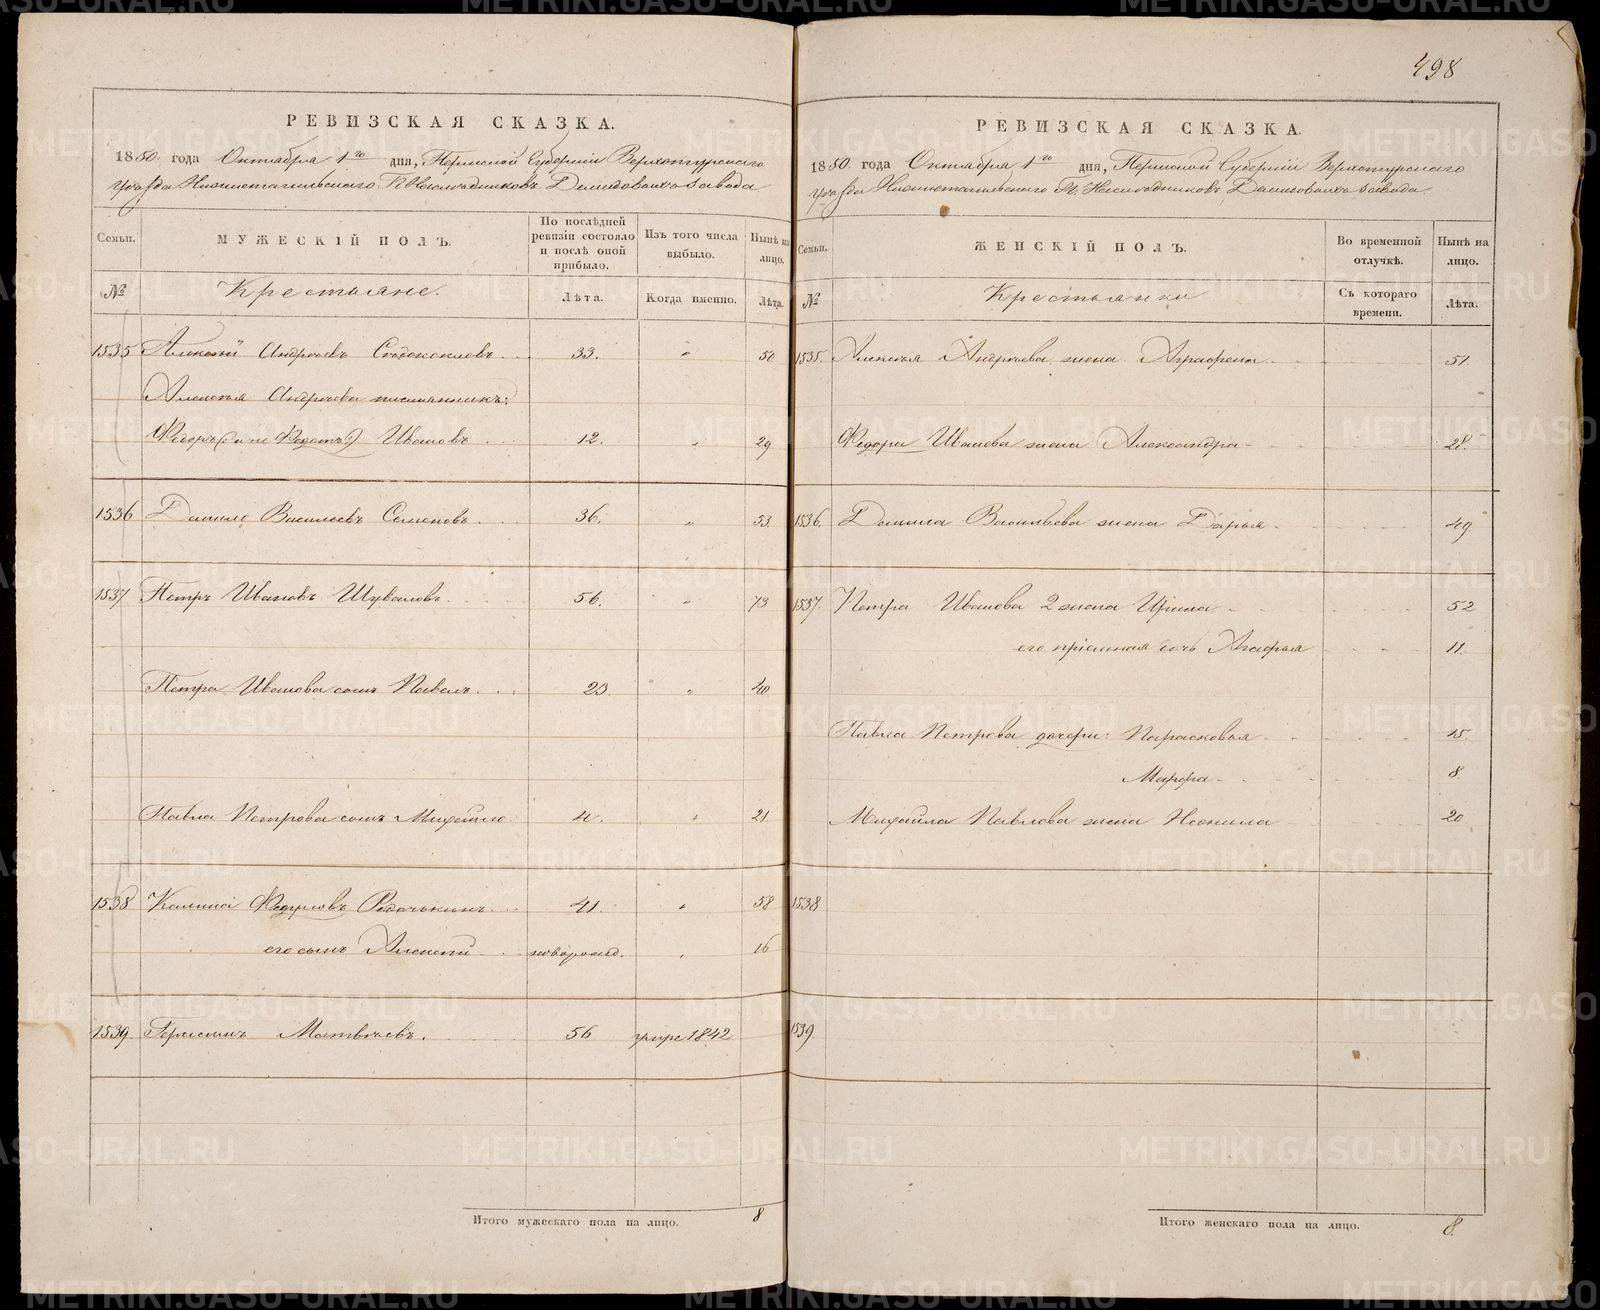 498
РЕВИЗСКАЯ СКАЗКА.
1850 года Октября 1го дня, Пермской Губерніи Верхотурскаго
уѣзда Нижнетагильскаго Гг. Наслѣдниковъ Демидовыхъ завода
Семьи. МУЖЕСКІЙ ПОЛЪ. По послѣдней ревизіи состояло и послѣ оной прибыло. Изъ того числа выбыло. Нынѣ на лицо.
№ Крестьяне. Лѣта. Когда именно. Лѣта.
1535 Алексѣй Андреевъ 33. „ 50
Алексѣя Андреева племянникъ:
Федоръ (а не Федотъ) Ивановъ 12. „ 29
1536 Данило Васильевъ Семеновъ. 36. „ 53
1537 Петръ Ивановъ Шуваловъ. 56. „ 73
Петра Иванова сынъ Павелъ. 23 „ 40
Павла Петрова сынъ Михайло. 4. „ 21
1538 Федоровъ 41. „ 58
его сынъ Алексѣй новорожд. „ 16
1539 Герасимъ Матвѣевъ. 56 умре 1842
Итого мужескаго пола на лицо. 8
РЕВИЗСКАЯ СКАЗКА.
1850 года Октября 1го дня, Пермской Губерніи Верхотурскаго
уѣзда Нижнетагильскаго Гг. Наслѣдниковъ Демидовыхъ завода.
Семьи. ЖЕНСКІЙ ПОЛЪ. Во временной отлучкѣ. Нынѣ на лицо.
№ Крестьянки Съ котораго времени. Лѣта.
1535. Алексѣя Андреева жена Аграфена 51.
Федора Иванова жена Александра 28.
1536. Данила Васильева жена Дарья 49
1537. Петра Иванова 2 жена Ирина 52
его пріемная дочь Агафья 11.
Павла Петрова дочери: Парасковья 15
Марфа 8
Михайла Павлова жена Неонила 20
1538
1539.
Итого женскаго пола на лицо. 8.
METRIKI.GASO-URAL.RU